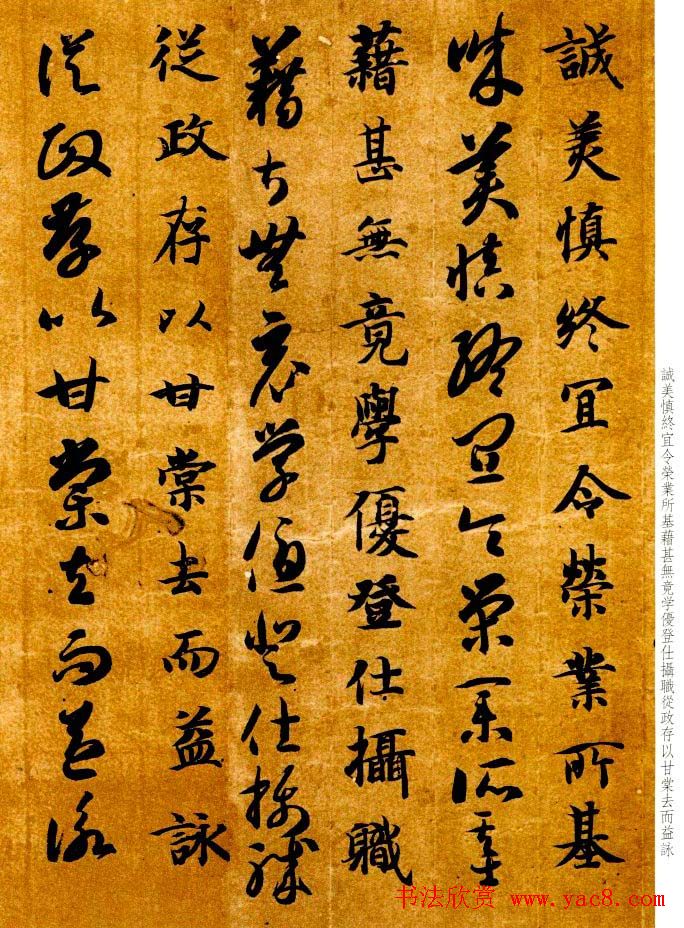 誠美慎終宜令榮業所基藉甚無竟学優登仕攝職從政存以甘棠去而益詠
誠美慎終宜令榮業所基
誠美慎終宜令榮業所基
藉甚無竟學優登仕攝職
藉甚無竟學優登仕攝職
從政存以甘棠去而益詠
從政存以甘棠去而益詠
书法欣赏 www.yac8.com